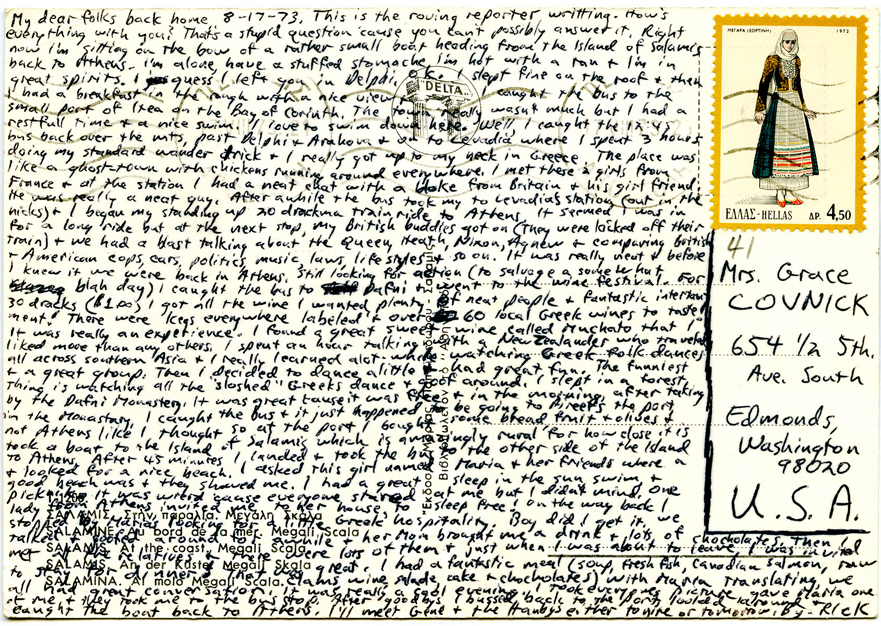 My dear folks back home 8-17-73. This is the roving reporter writting. How's
everything with you? That's a stupid question 'cause you can't possibly answer it. Right
now i'm sitting on the bow of a rather small boat heading from the Island of Salamis
back to Athens. i'm alone, have a stuffed stomache, I'm hot with a tan & I'm in
great spirits. I guess I left you in Delphi, O.K. I slept fine on the roof & then
I had a breakfast in the rough with a nice view & caught the bus to the
small port of Itea on the Bay of Corinth. The town really wasn't much but I had a
restfull time & a nice swim. I love to swim down here. Well, I caught the 12:45
bus back over the mts, past Delphi & Arahova & on to Levadia where I spent 3 hours
doing my standard wander trick & I really got up to my neck in Greece. The place was
like a ghostatown with chickens running around everywhere. I met these 2 girls from
France & at the station I had a neat chat with a bloke from Britain & his girl friend.
He was really a neat guy. After awhile the bus took my to Levadia station (out in the
nicks) & I began my standing up 20 drackma train ride to Athens. It seemed I was in
for a long ride but at the next stop, my British buddies got on (they were locked off their
train) & we had a blast talking about the Queen, Heath, Nixon, Agnew & comparing british
& American cops, cars, politics, music, laws, lifestyles & so on. It was really neat & before
I knew it we were back in Athens. Still looking for action (to salvage a somewhat
blah day) I caught the bus to Dafni & went to the wine festival. For
30 dracks ($1.00) I got all the wine I wanted plenty of neat people & fantastic intertain
ment. There were kegs everywhere labeled & over 60 local Greek wines to taste!
It was really an experience. I found a great sweet wine called Muchato that I
liked more than any others. I spent an hour talking with a New Zealander who traveled
all across southern Asia & I really learned alot while watching Greek folk dances
& a great group. Then I decided to dance alittle & had great fun. The funniest
thing is watching all the "sloshed" Greeks dance & goof around. I slept in a forest
by the Dafni Monastery. It was great 'cause it was free & in the morning, after taking
in the Monastary, I caught the bus & it just happened to be going to Pireefs the port
not Athens like I thought so at the port I bought some bread fruit & olives &
took a boat to the Island of Salamis which is amazingly rural for how close it is
to Athens. After 45 minutes I landed & took the bus to the other side of the Island
& looked for a nice beach. I asked this girl named Maria & her friends where a
good beach was & they showed me. I had a great sleep in the sun, swim &
picknick. It was wierd 'cause everyone stared at me but I didn't mind. One
lady from Athens invited me to her house to sleep free! On the way back I
stopped by Maria's looking for a little Greek hospitality. Boy did I get it, we
talked & looked around for awhile & her Mom brought me a drink & lots of chocholates. Then I
met relatives & there were lots of them & just when I was about to leave, I was invited
to stay for dinner & it was great. I had a fantastic meal (soup, fresh fish, Canadian Salmon, raw
clams, wine salade, cake & chocholates) with Maria translating, we
all had great conversation. It was really a cool evening. I took everyones picture gave Maria one
of me & they took me to the bus stop. After goodbys I bussed back to the port, looked around &
caught the boat back to Athens. I'll meet Gene & the Handys either tonite or tomorrow. By- RICK
DELTA
ΜΕΓΑΡΑ (ΕΟΡΤΙΝΗ) 1972
ΕΛΛΑΣ-HELLAS ΔΡ. 4,50
41
Mrs. Grace
COVNICK
654 1/2 5th.
Ave. South
Edmonds,
Washington
98020
U.S.A.
ΣΑΛΑΜΙΣ. Στην παραλία. Μεγάλη Σκάλα
SALAMINE. Au bord de la mer. Megali Scala
SALAMIS. At the coast. Megali Scala
SALAMIS. An der Küste. Megali Skala
SALAMINA. Al molo. Megali Scala.